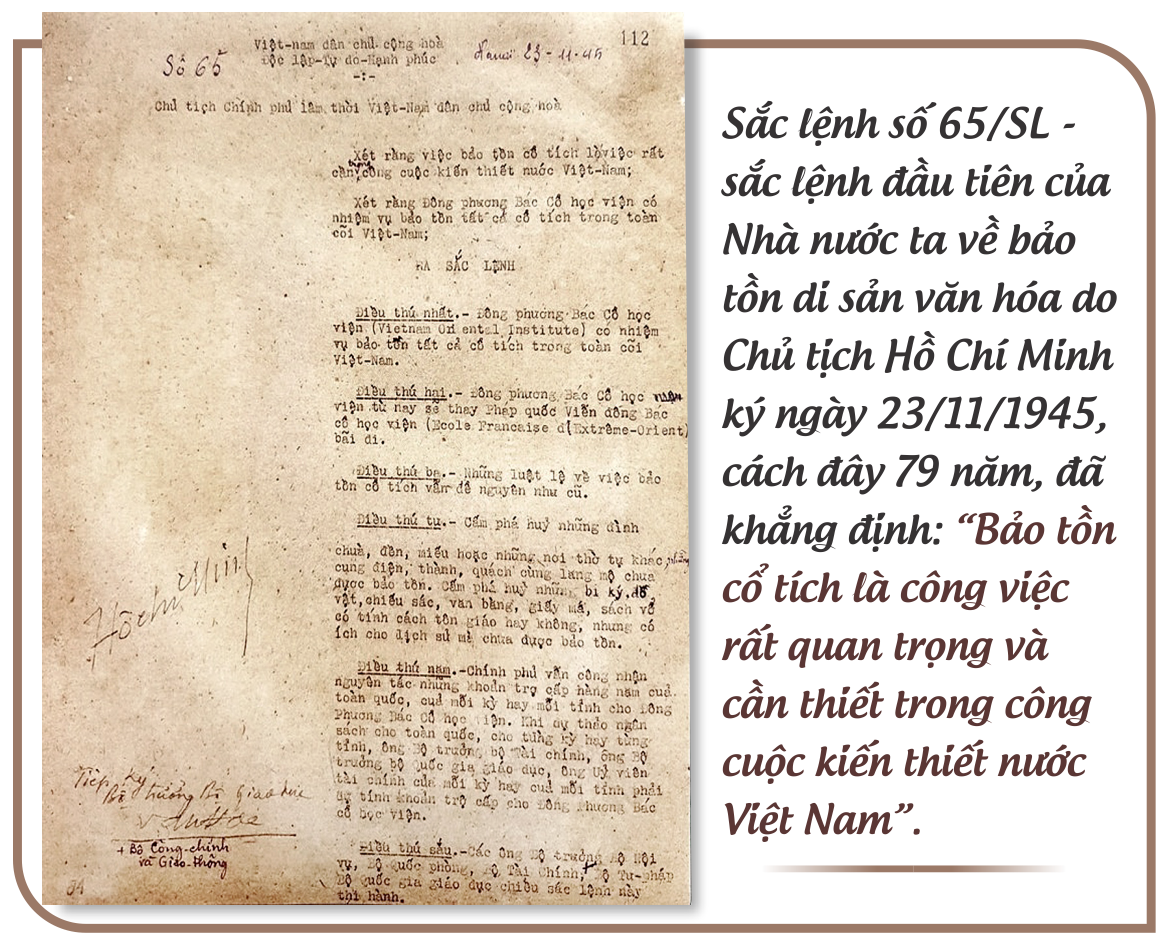 Số 65
Việt-nam dân chủ cộng hoà
Độc lập-Tự do-Hạnh phúc
-:-
Hanoi 23-11-45
112
Chủ tịch Chính phủ lâm thời Việt-Nam dân chủ cộng hoà
Xét rằng việc bảo tồn cổ tích là việc rất
cần trong công cuộc kiến thiết nước Việt-Nam;
Xét rằng Đông phương Bác Cổ học viện có
nhiệm vụ bảo tồn tất cả cổ tích trong toàn
cõi Việt-Nam;
RA SẮC LỆNH
Điều thứ nhất.- Đông phương Bác Cổ học
viện (Vietnam Oriental Institute) có nhiệm
vụ bảo tồn tất cả cổ tích trong toàn cõi
Việt-Nam.
Điều thứ hai.- Đông phương Bác Cổ học
viện từ nay sẽ thay Pháp quốc Viễn đông Bác
cổ học viện (Ecole Francaise d(Extrême-Orient)
bãi đi.
Điều thứ ba.- Những luật lệ về việc bảo
tồn cổ tích vẫn để nguyên như cũ.
Điều thứ tư.- Cấm phá huỷ những đình
chùa, đền, miếu hoặc những nơi thờ tự khác, những
cung điện, thành, quách cùng lăng mộ chưa
được bảo tồn. Cấm phá huỷ những bi ký, đồ
vật, chiếu sắc, văn bằng, giấy má, sách vở
có tính cách tôn giáo hay không, nhưng có
ích cho lịch sử mà chưa được bảo tồn.
Điều thứ năm.-Chính phủ vẫn công nhận
nguyên tắc những khoản trợ cấp hàng năm của
toàn quốc, của mỗi kỳ hay mỗi tỉnh cho Đông
Phương Bác Cổ học viện. Khi dự thảo ngân
sách cho toàn quốc, cho từng kỳ hay từng
tỉnh, ông Bộ trưởng bộ Tài chính, ông Bộ
trưởng bộ Quốc gia giáo dục, ông Uỷ viên
tài chính của mỗi kỳ hay của mỗi tỉnh phải
dự tính khoản trợ cấp cho Đông Phương Bác
cổ học viện.
Điều thứ sáu.-Các ông Bộ trưởng Bộ Nội
vụ, Bộ Quốc phòng, Bộ Tài Chính, Bộ Tư-pháp
Bộ Quốc gia giáo dục chiểu sắc lệnh này
thi hành.
Hồ Chí Minh
Tiếp ký
Bộ trưởng Bộ Giáo dục
+ Bộ Công-chính
và Giao-thông
Sắc lệnh số 65/SL -
sắc lệnh đầu tiên của
Nhà nước ta về bảo
tồn di sản văn hóa do
Chủ tịch Hồ Chí Minh
ký ngày 23/11/1945,
cách đây 79 năm, đã
khẳng định: “Bảo tồn
cổ tích là công việc
rất quan trọng và
cần thiết trong công
cuộc kiến thiết nước
Việt Nam”.